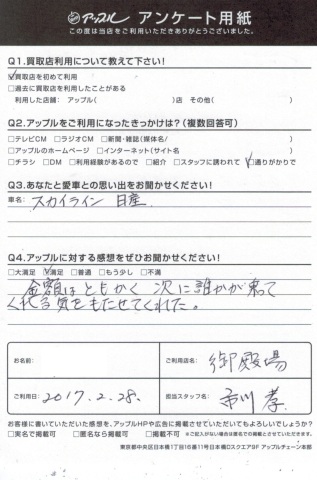 アップル アンケート用紙
この度は当店をご利用いただきありがとうございました。
Q1.買取店利用について教えて下さい!
☑買取店を初めて利用
□過去に買取店を利用したことがある
利用した店舗: アップル( )店 その他( )
Q2.アップルをご利用になったきっかけは?(複数回答可)
□テレビCM □ラジオCM □新聞・雑誌(媒体名/ )
□アップルのホームページ □インターネット(サイト名 )
□チラシ □DM □利用経験があるので □紹介 □スタッフに誘われて ☑通りがかりで
Q3.あなたと愛車との思い出をお聞かせください!
車名: スカイライン 日産
Q4.アップルに対する感想をぜひお聞かせください!
□大満足 ☑満足 □普通 □もう少し □不満
金額はともかく 次に誰かが乗って
くれる気をもたせてくれた。
お名前:
ご利用店名: 御殿場
ご利用日: 2017.2.28.
担当スタッフ名: 市川 孝
お客様に書いていただいた感想を、アップルHPや広告に掲載させていただいてもよろしいでしょうか?
□実名で掲載可 □匿名なら掲載可 □掲載不可 ※ご記入がない場合は匿名での掲載とさせていただきます。
東京都中央区日本橋1丁目16番11号日本橋Dスクエア5F アップルチェーン本部